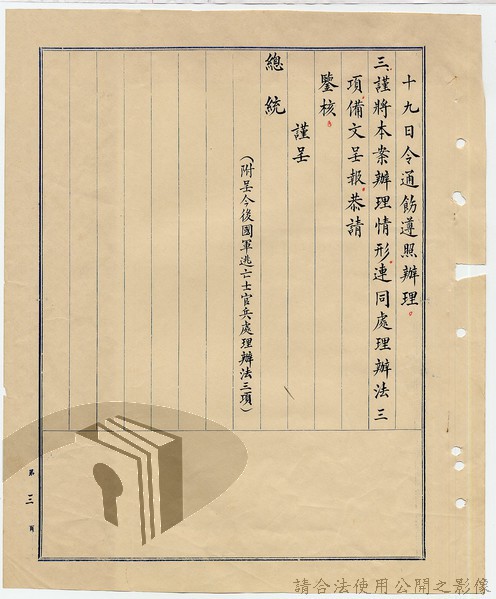 十九日令通飭遵照辦理。
三、謹將本案辦理情形，連同處理辦法三
項，備文呈報，恭請
鑒核。
謹呈
總統
（附呈今後國軍逃亡士官兵處理辦法三項）
第三頁
請合法使用公開之影像